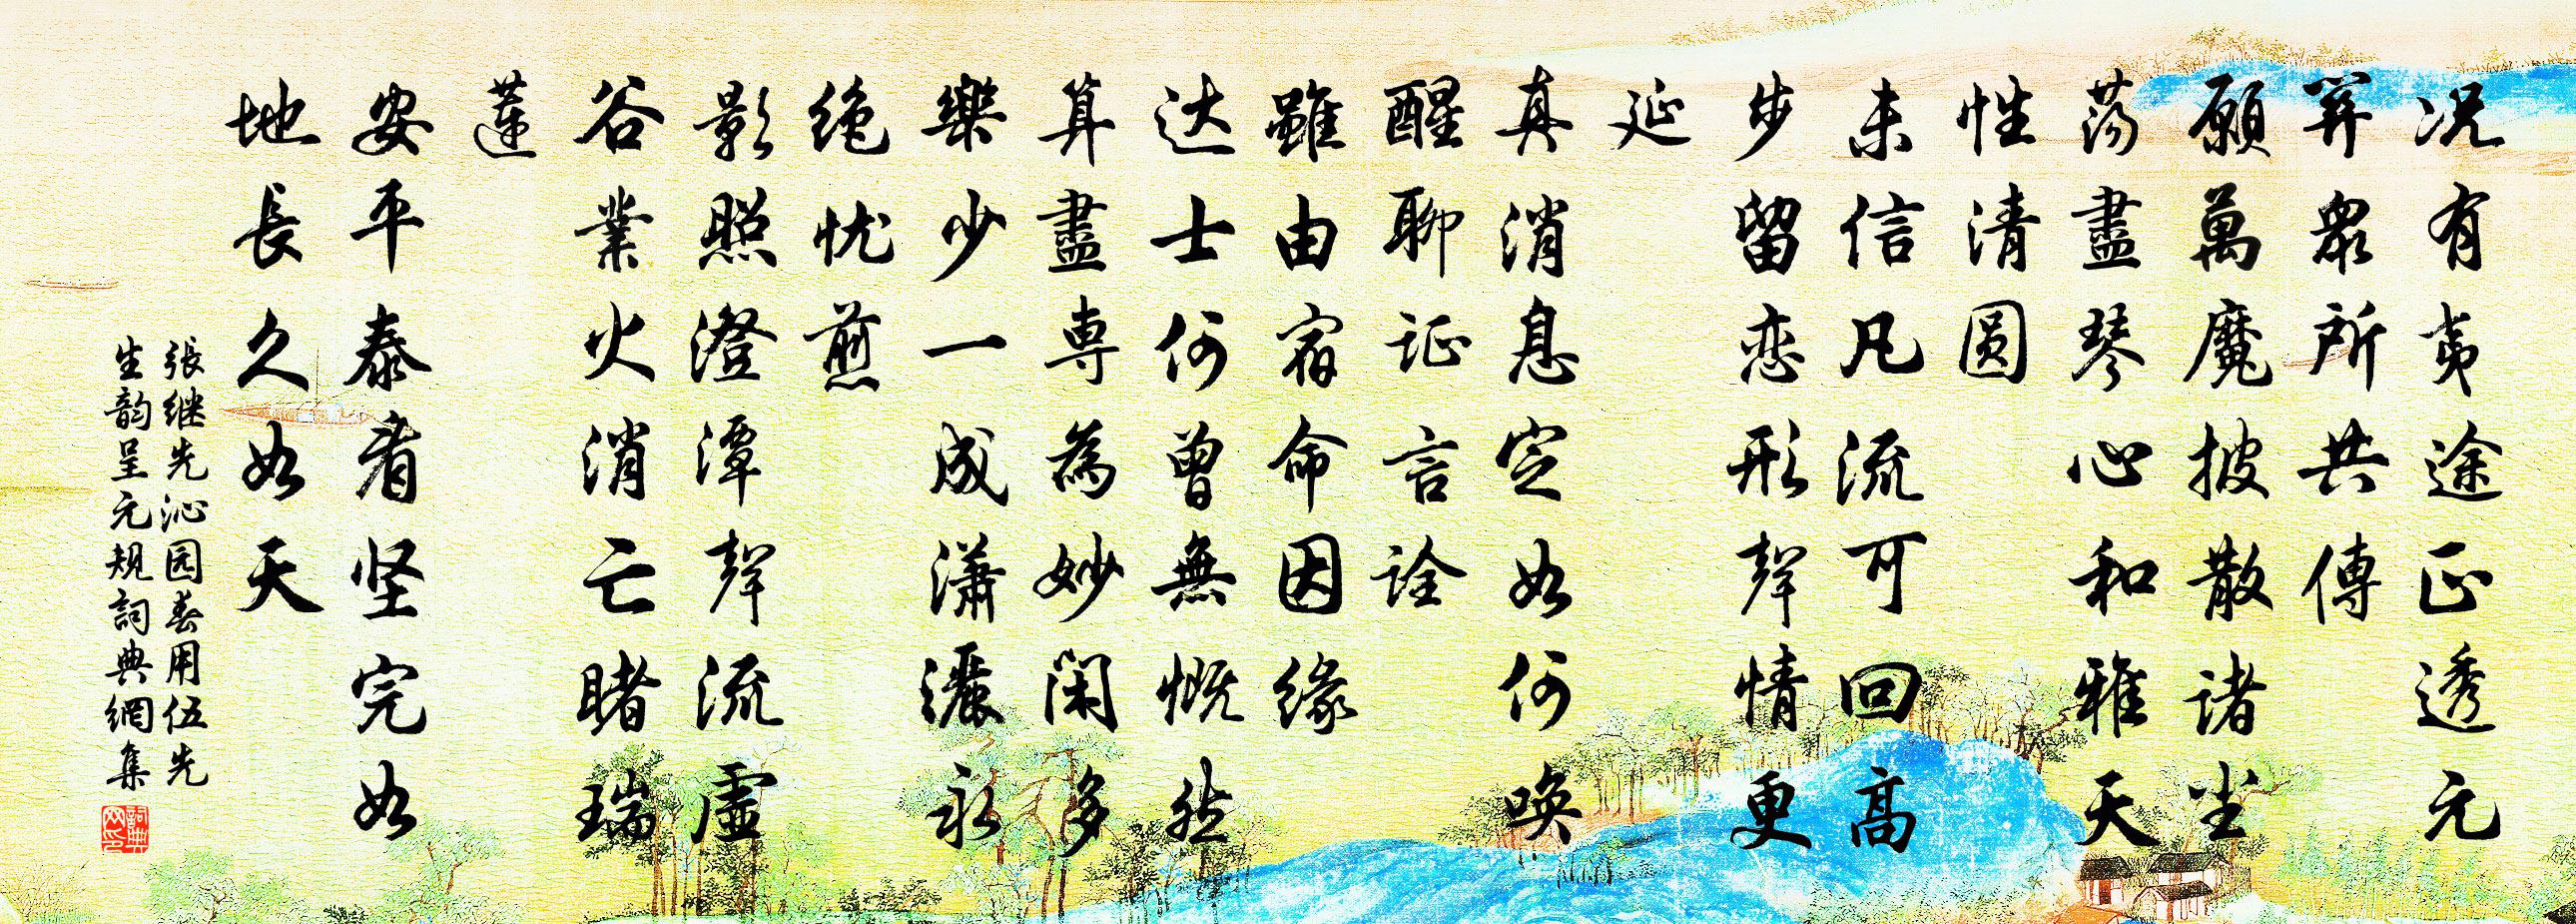 况有夷途正透元
羿眾所共傳
願萬魔披散諸尘
荡盡琴心和雅天
性清圆
未信凡流可回高
步留恋形聲情更
延
真消息定如何唤
醒聊证言诠
雖由宿命因缘
达士何曾無慨然
算盡専為妙闲多
樂少一成潇灑永
绝忧煎
影照澄潭聲流虛
谷業火消亡睹瑞
莲
安平泰看坚完如
地長久如天
張继先沁园春用伍先
生韵呈元规詞典網集